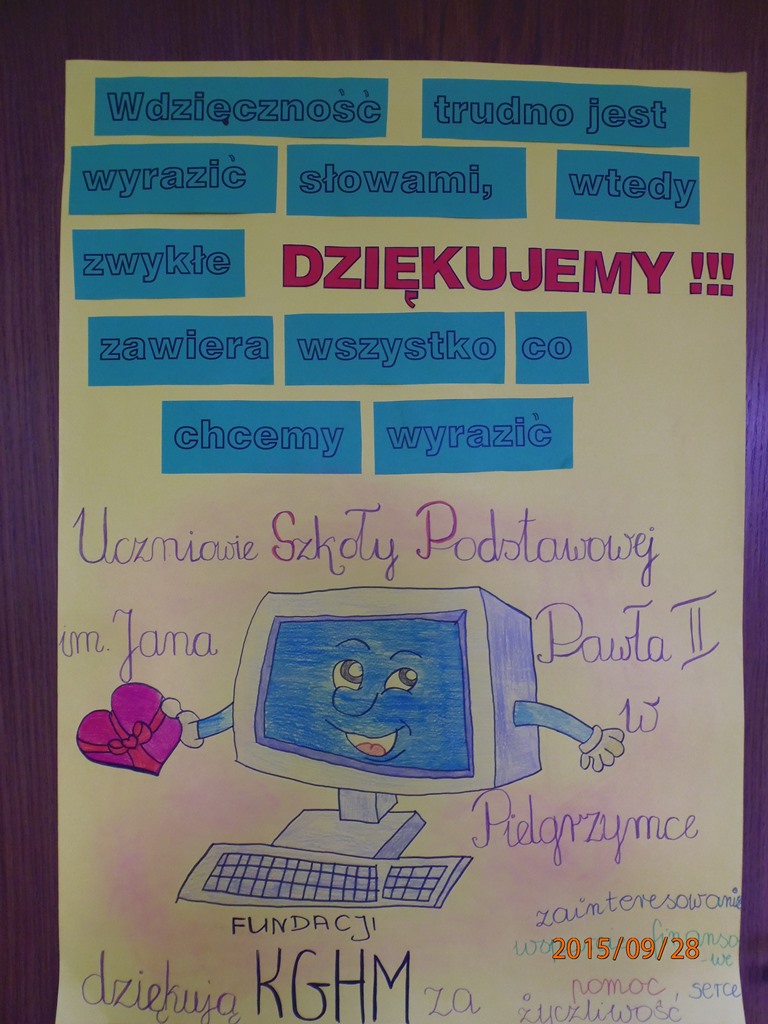 Wdzięczność trudno jest
wyrazić słowami, wtedy
zwykłe DZIĘKUJEMY !!!
zawiera wszystko co
chcemy wyrazić
Uczniowie Szkoły Podstawowej
im. Jana Pawła II
w
Pielgrzymce
FUNDACJI
dziękują KGHM za
zainteresowanie
finanso
-we
2015/09/28
pomoc, serce
życzliwość